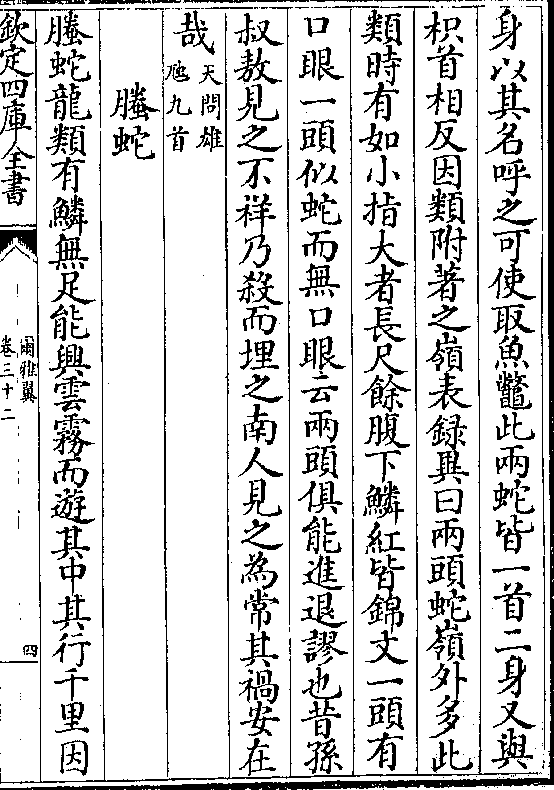 身以其名呼之可使取魚鼈此兩蛇皆一首二身又與
枳首相反因類附著之嶺表録異曰兩頭蛇嶺外多此
類時有如小指大者長尺餘腹下鱗紅皆錦文一頭有
口眼一頭似蛇而無口眼云兩頭俱能進退謬也昔孫
叔敖見之不祥乃殺而埋之南人見之為常其禍安在
哉天問雄虺九首
螣蛇
螣蛇龍類有鱗無足能興雲霧而遊其中其行千里因
欽定四庫全書
爾雅翼
卷三十二
四